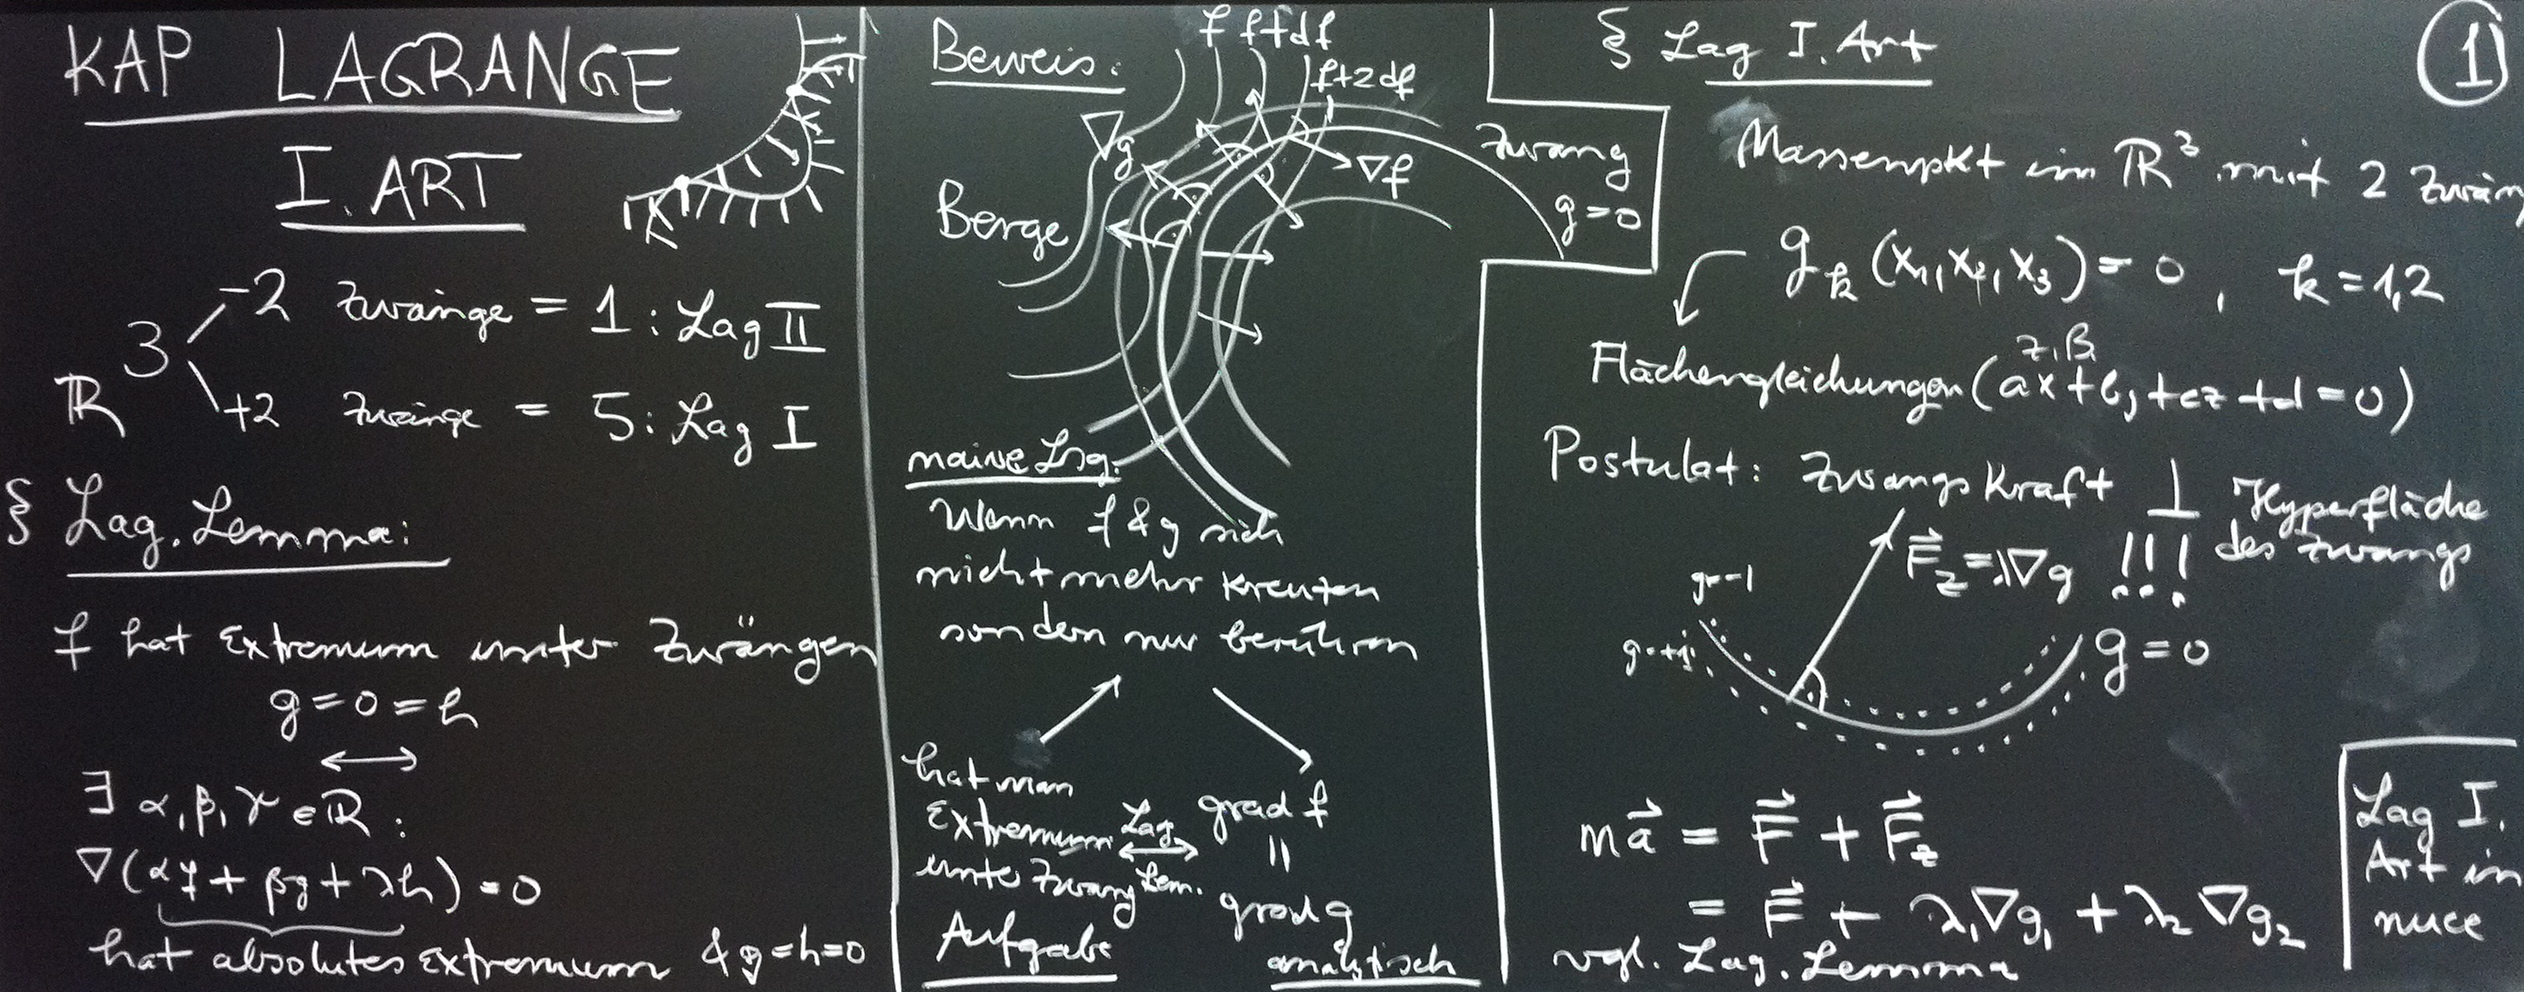 KAP LAGRANGE
I. ART
ℝ 3
-2 Zwänge = 1 : Lag II
+2 Zwänge = 5 : Lag I
§ Lag. Lemma:
f hat Extremum unter Zwängen
g = 0 = h
↔
∃ α, β, γ ∈ ℝ :
∇(αf + βg + λh) = 0
hat absolutes Extremum & g=h=0
Beweis:
f f+df
f+2df
∇g
∇f
Berge
Zwang
g=0
naive Lsg.
Wenn f & g sich
nicht mehr kreuzen
sondern nur berühren
hat man
Extremum
unter Zwang
Aufgabe
Lag.
↔
Lem.
grad f
=
grad g
analytisch
§ Lag I. Art
①
Massenpkt im ℝ³ mit 2 Zwän
g_k (x₁, x₂, x₃) = 0, k = 1,2
Flächengleichungen (z.B. ax+by+cz+d=0)
Postulat: Zwangskraft ⊥ Hyperfläche
des Zwangs
F⃗_z = λ∇g !!!
g=-1
g=+1
g = 0
ma⃗ = F⃗ + F⃗_z
= F⃗ + λ₁∇g₁ + λ₂∇g₂
vgl. Lag. Lemma
Lag I.
Art in
nuce